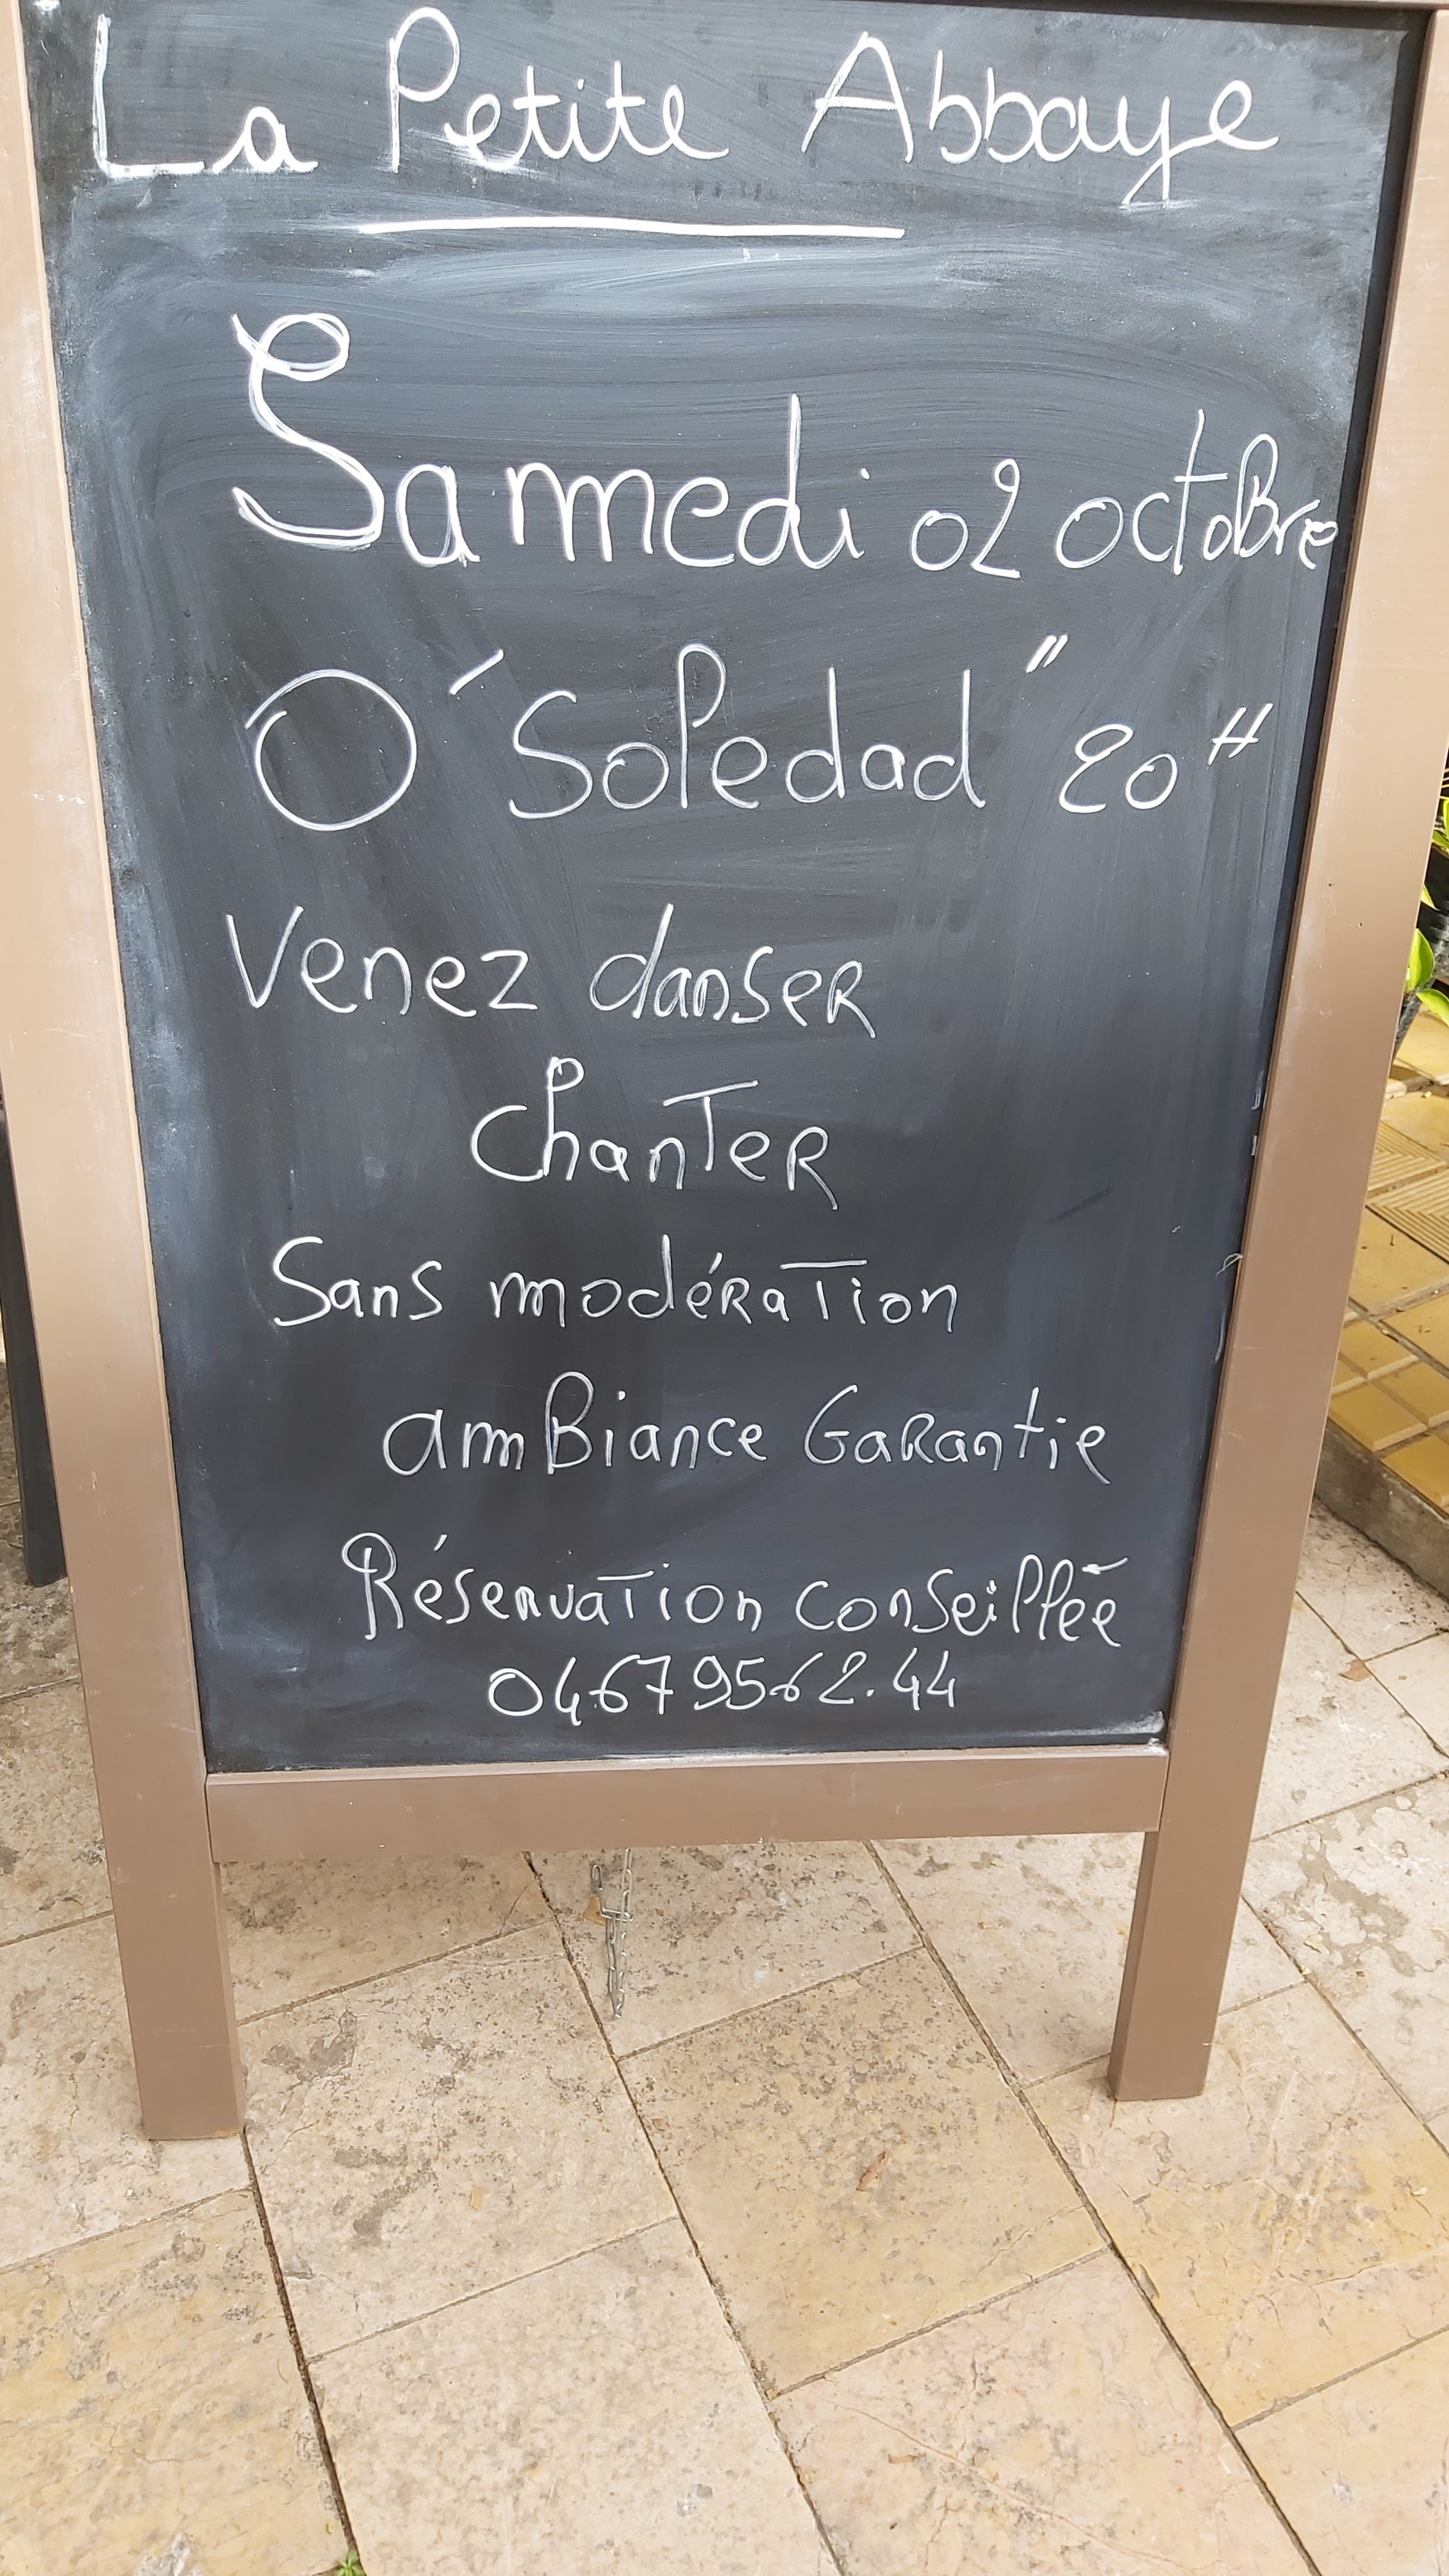 La Petite Abbaye
Samedi 02 octoBre
O'Soledad" 20H
Venez danseR
chanTeR
Sans modéRaTion
amBiance GaRantie
RéservaTion conseillée
04679562.44